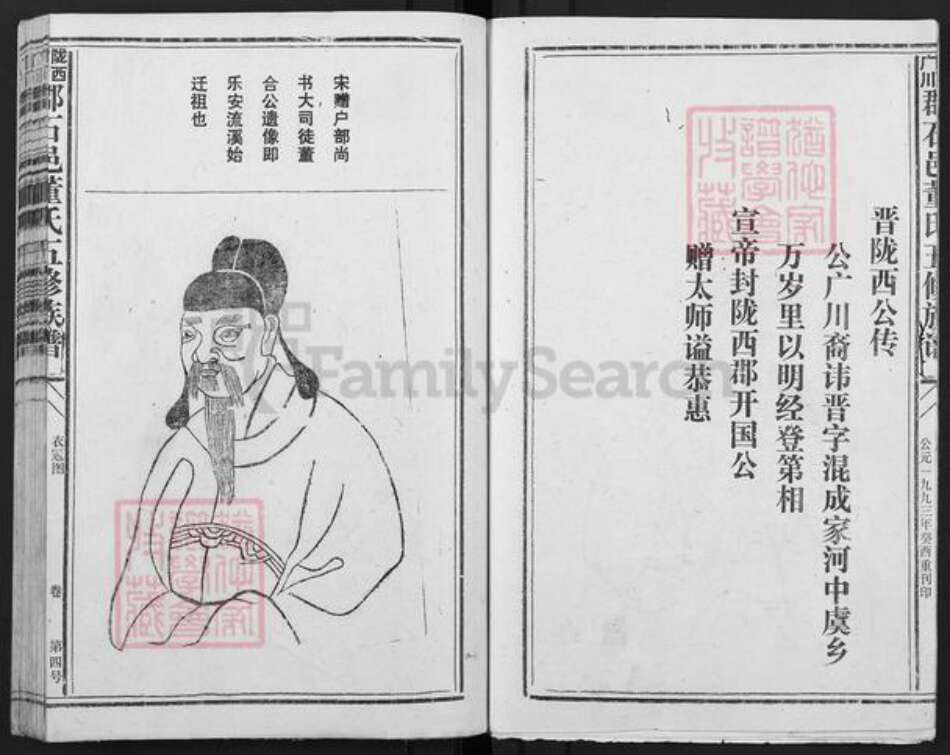 广川郡石邑董氏五修族谱
公元一九九三年癸酉重刊印
晋陇西公传
公广川裔讳晋字混成家河中虞乡
万岁里以明经登第相
宣帝封陇西郡开国公
赠太师谥恭惠
宋赠户部尚
书大司徒董
合公遗像即
乐安流溪始
迁祖也
陇西郡石邑董氏五修族谱
衣冠图
卷
第四号
FamilySearch
谱学会
收藏
谱学会
收藏